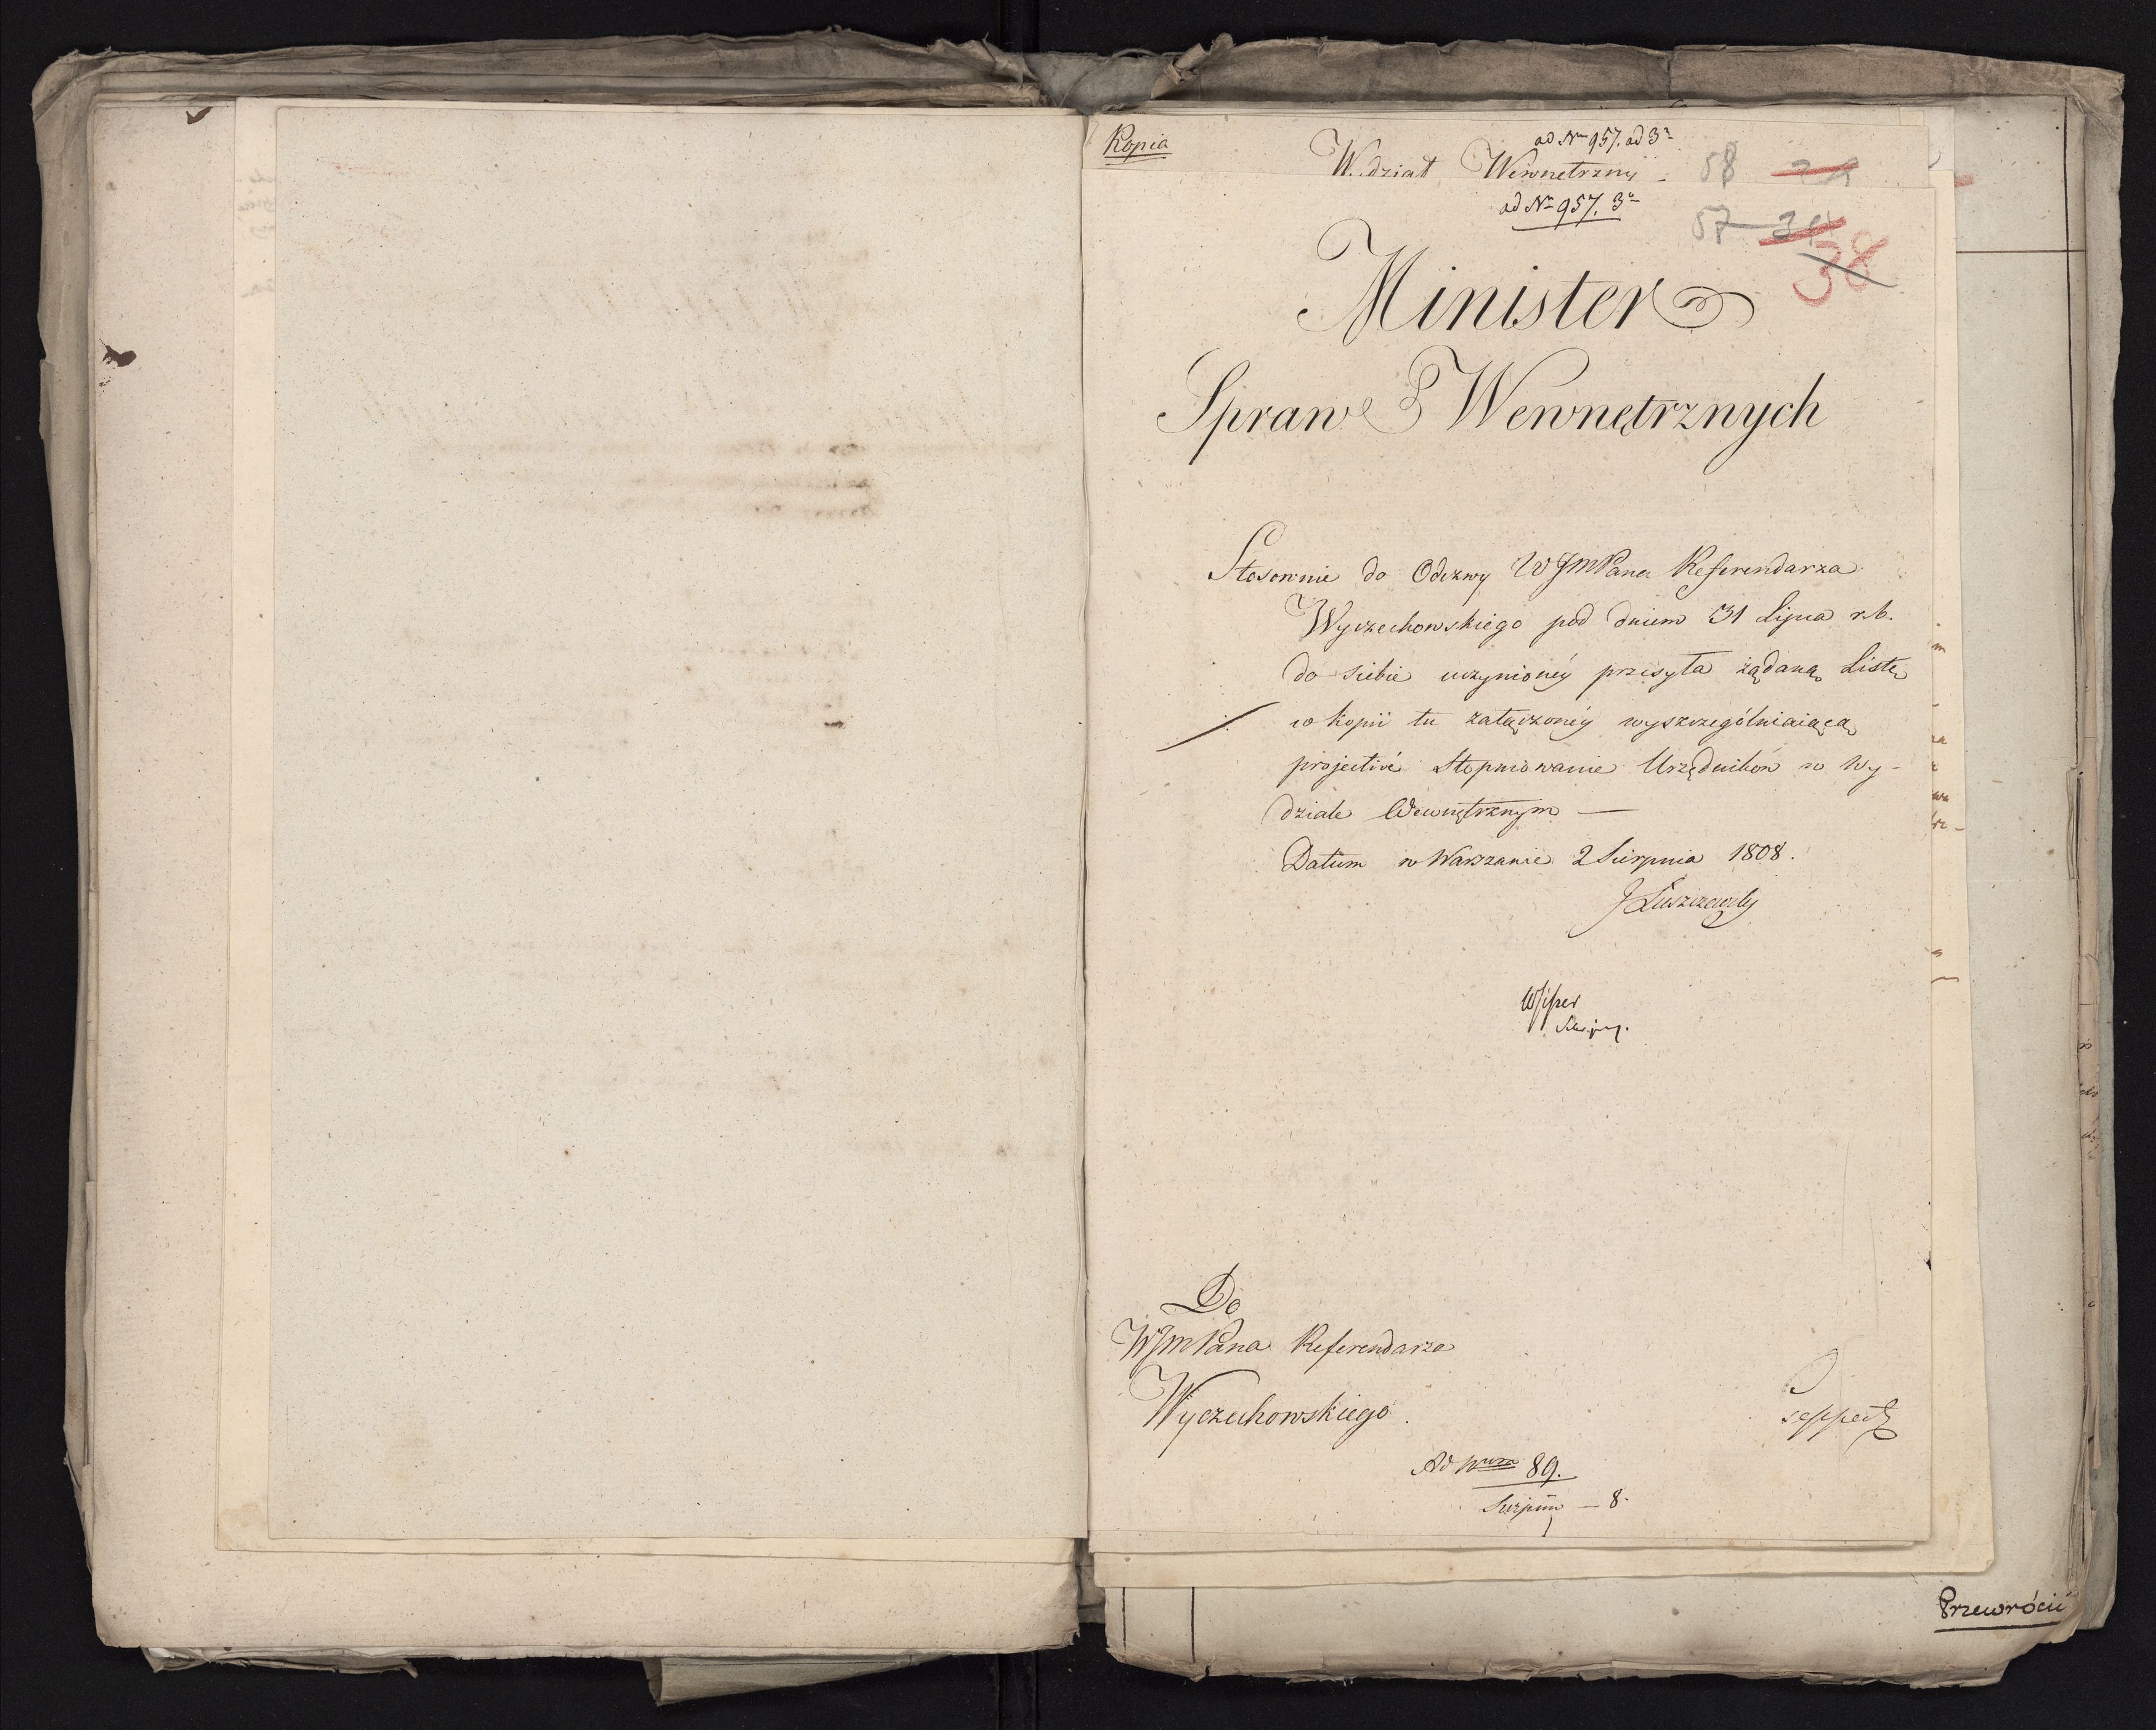 Kopia
ad Nrm 957. ad 3o
Wydział Wewnetrzny
58
ad Nr 957. 3o
57
38
Minister
Spraw Wewnętrznych
Stosownie do Odezwy WJMPana Referendarza
Wyczechowskiego pod dniem 31 Lipca r.b.
do siebie uczynionéy przesyła żądaną Listę
w kopii tu załączonéy wyszczególniaiącą
projectivé Stopniowanie Urzędników w Wy-
dziale Wewnętrznym —
Datum w Warszawie 2 Sierpnia 1808.
J Łuszczewski
Do
WJMPana Referendarza
Wyczechowskiego.
Ad Nrum 89.
Sierpnia — 8.
Przewrócić